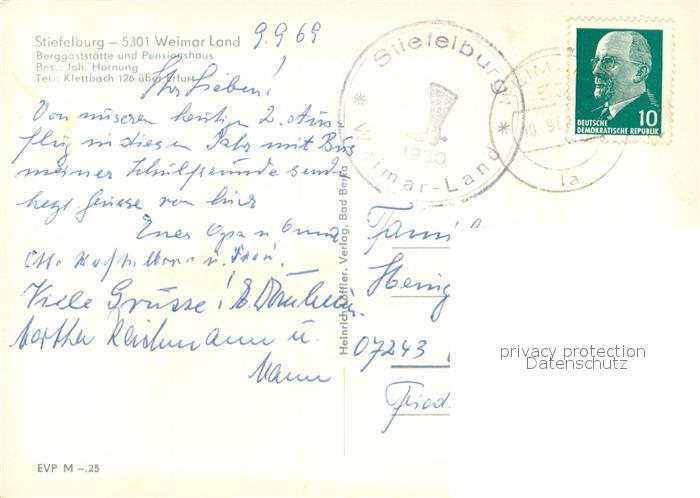 Stiefelburg – 5301 Weimar Land
Berggaststätte und Pensionshaus
Bes.: Joh. Hornung
Tel.: Klettbach 126 über Erfurt
9.9.69
Ihr Lieben!
Von unserem heutigen 2. Aus-
flug in diesem Jahr mit Bus
meiner Schulfreunde send
herzl Grüsse von hier
Euer Opa u Oma
Otto u. Frau.
Viele Grüsse!
Martha Reichmann u.
Mann
EVP M –.25
Heinrich Löffler, Verlag, Bad Berka
Stiefelburg
1930
Weimar-Land
10.9.6
1a
10
DEUTSCHE
DEMOKRATISCHE REPUBLIK
Fami
Heinz
07243
Fried
privacy protection
Datenschutz